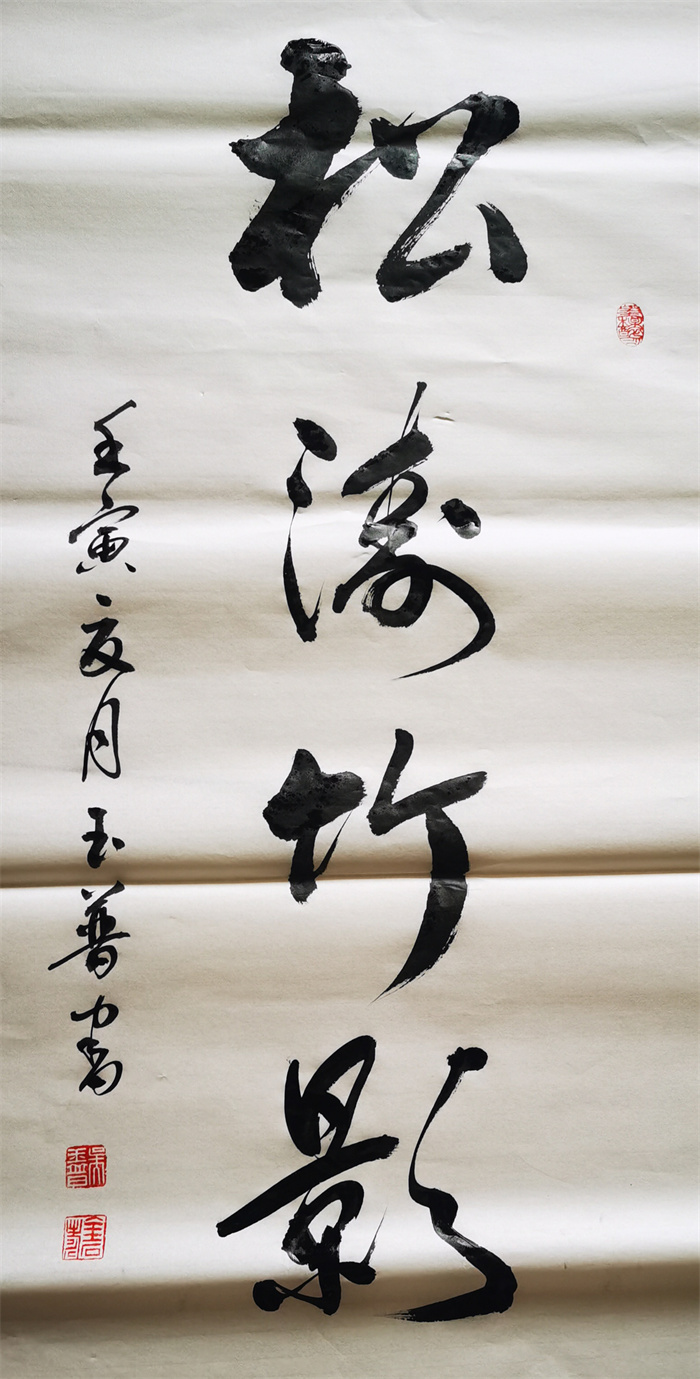 松涛竹影
壬寅夏月玉普书